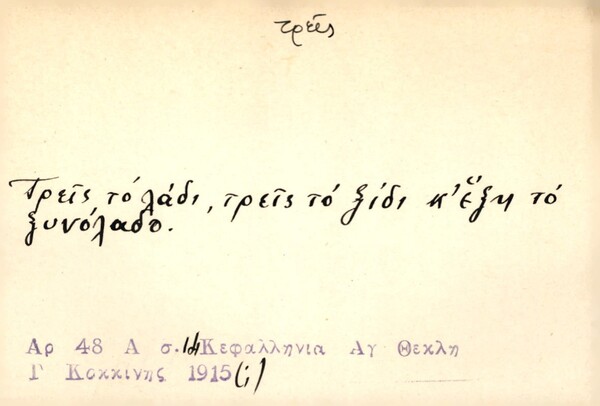 τρεῖς
Τρεῖς τό λάδι, τρεῖς τό ξίδι κ' ἕξη τό
ξυνόλαδο.
Αρ 48 Α σ. 14 Κεφαλληνια Αγ Θεκλη
Γ Κοκκινης 1915 (;)